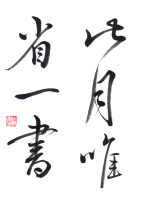 此月唯
省一書